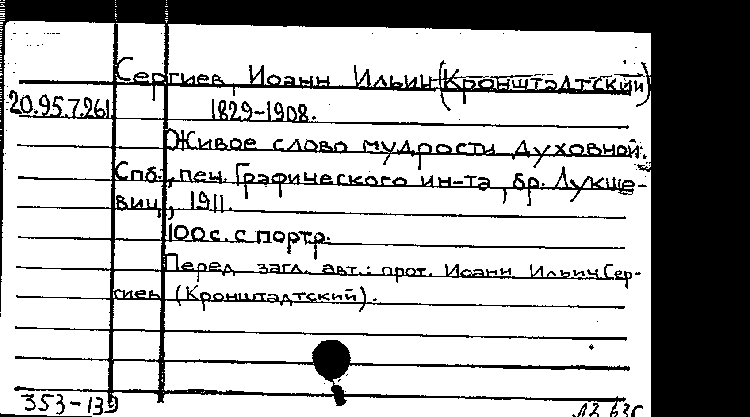 Сергиев, Иоанн Ильич (Кронштадтский)
20.95.7.261 1829-1908.
Живое слово мудрости духовной.
Спб., печ. Графического ин-та, бр. Лукше-
виц, 1911.
100 с. с портр.
Перед загл. авт.: прот. Иоанн Ильич Сер-
гиев (Кронштадтский).
353-139